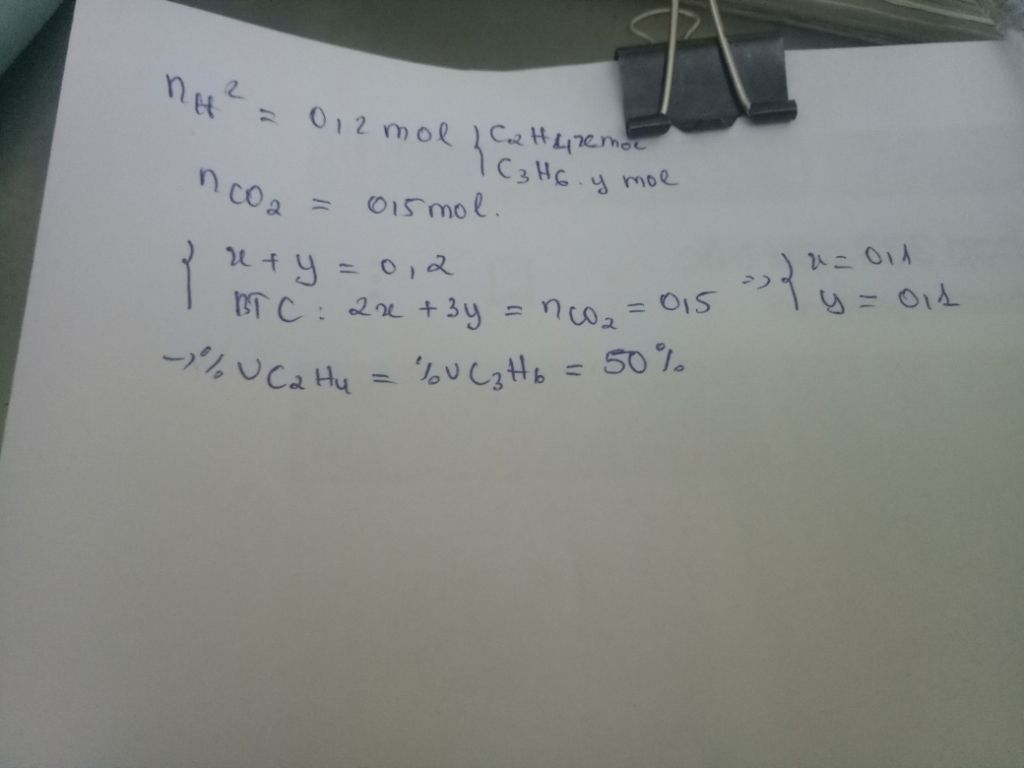 nH² = 0,2 mol { C2H4, x mol
C3H6. y mol
nCO2 = 0,5 mol.
{ x + y = 0,2
BTC: 2x + 3y = nCO2 = 0,5 => { x = 0,1
y = 0,1
→ % VC2H4 = % VC3H6 = 50%